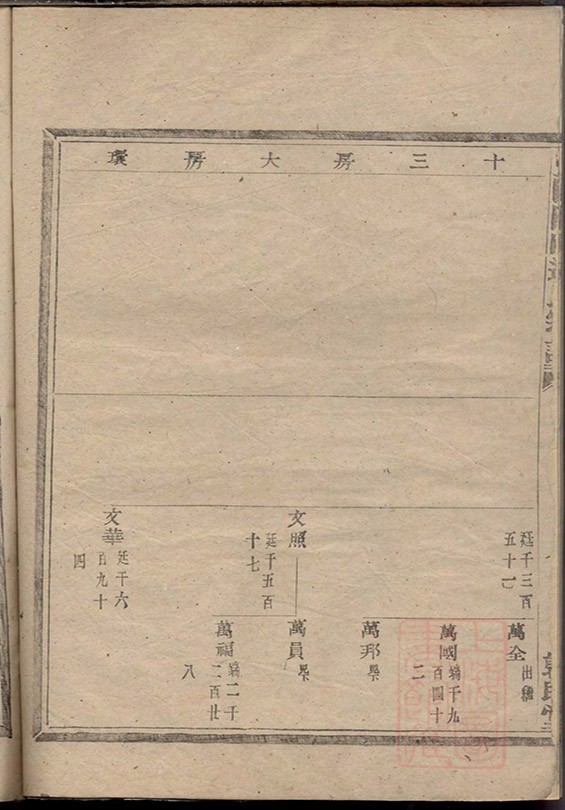 十三房大房
廷千三百
五十
萬全
出繼
萬國
端千九
百四十
二
萬邦
早卒
文照
廷千五百
十七
萬員
早卒
萬福
端二千
二百廿
八
文華
廷千六
百九十
四